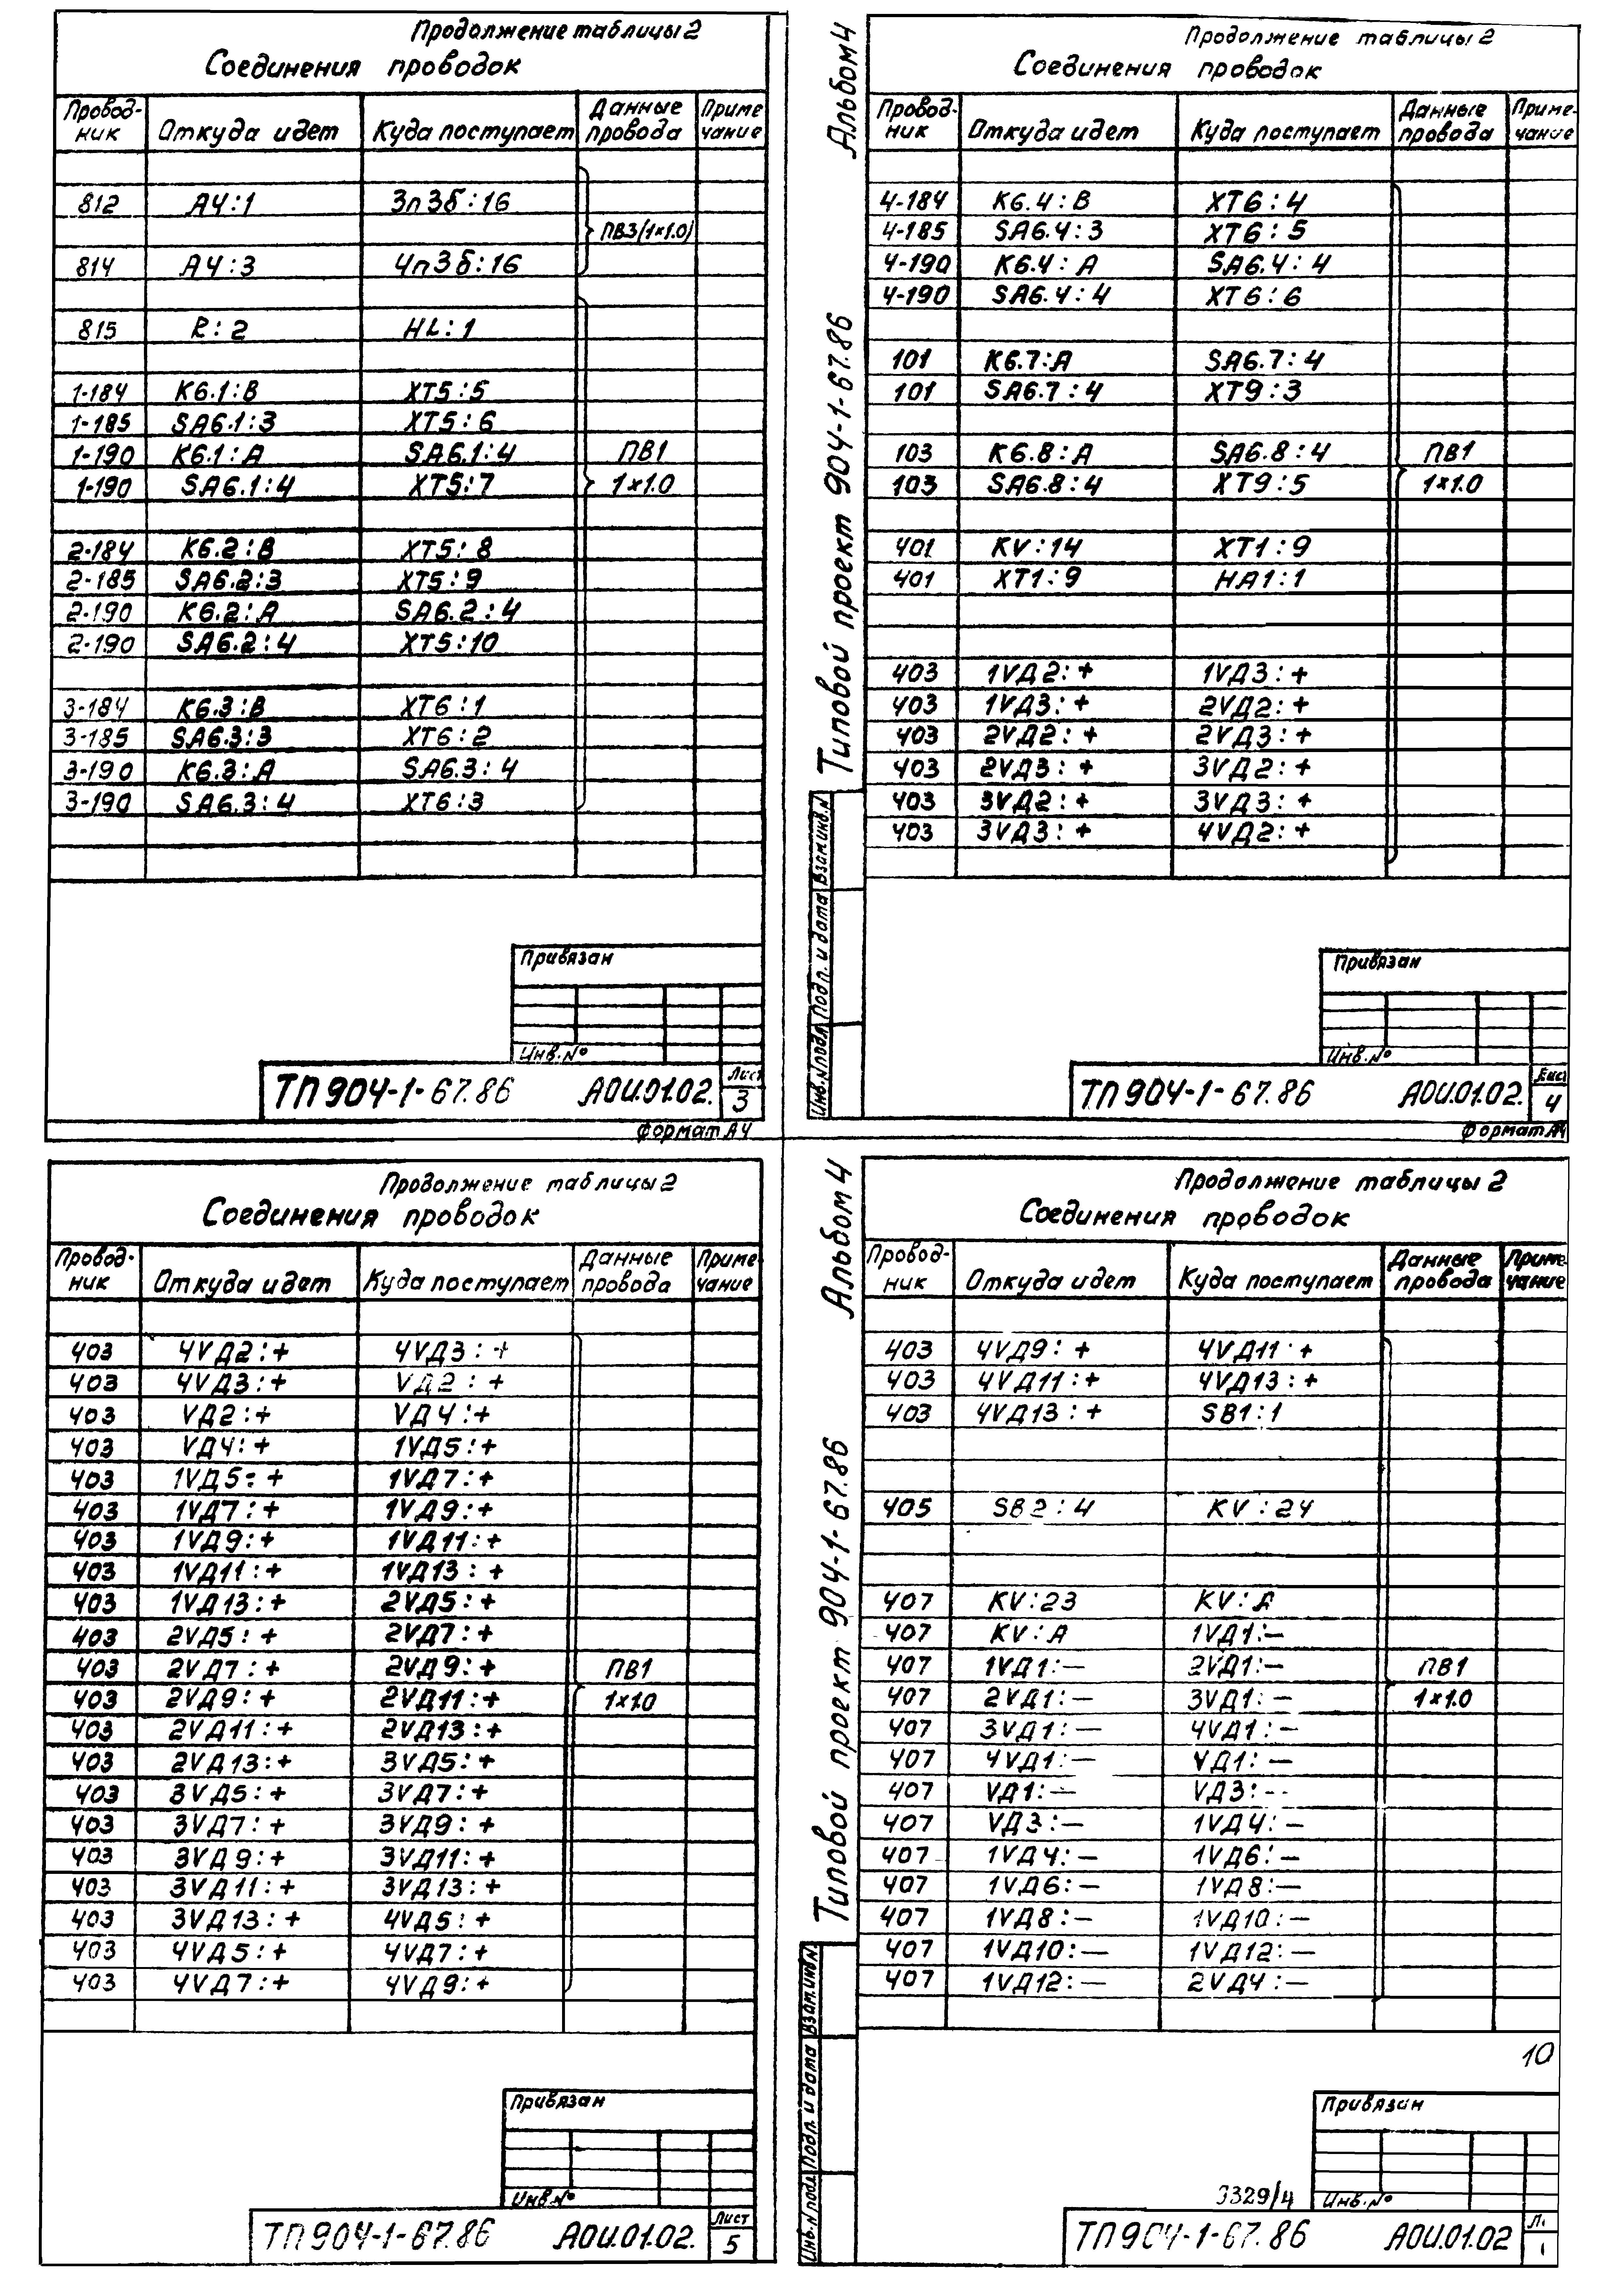 Продолжение таблицы 2
Соединения проводок
Провод-ник Откуда идет Куда поступает Данные провода Приме чание
812 А4:1 3п3б:16
ПВ3(1×1.0)
814 А4:3 4п3б:16
815 R:2 HL:1
1-184 К6.1:В ХТ5:5
1-185 SA6.1:3 ХТ5:6
1-190 К6.1:А SA6.1:4 ПВ1
1-190 SA6.1:4 ХТ5:7 1×1.0
2-184 К6.2:В ХТ5:8
2-185 SA6.2:3 ХТ5:9
2-190 К6.2:А SA6.2:4
2-190 SA6.2:4 ХТ5:10
3-184 К6.3:В ХТ6:1
3-185 SA6.3:3 ХТ6:2
3-190 К6.3:А SA6.3:4
3-190 SA6.3:4 ХТ6:3
Привязан
Инв.№
ТП 904-1-67.86 АОИ.01.02. Лист 3
Формат А4
Альбом 4
Типовой проект 904-1-67.86
Инв.N подл. Подп. и дата Взам.инв.N
Продолжение таблицы 2
Соединения проводок
Провод-ник Откуда идет Куда поступает Данные провода Приме-чание
4-184 К6.4:В ХТ6:4
4-185 SA6.4:3 ХТ6:5
4-190 К6.4:А SA6.4:4
4-190 SA6.4:4 ХТ6:6
101 К6.7:А SA6.7:4
101 SA6.7:4 ХТ9:3
103 К6.8:А SA6.8:4 ПВ1
103 SA6.8:4 ХТ9:5 1×1.0
401 KV:14 ХТ1:9
401 ХТ1:9 НА1:1
403 1VД2:+ 1VД3:+
403 1VД3:+ 2VД2:+
403 2VД2:+ 2VД3:+
403 2VД3:+ 3VД2:+
403 3VД2:+ 3VД3:+
403 3VД3:+ 4VД2:+
Привязан
Инв.№
ТП 904-1-67.86 АОИ.01.02. Лист 4
Формат А4
Продолжение таблицы 2
Соединения проводок
Провод-ник Откуда идет Куда поступает Данные провода Приме-чание
403 4VД2:+ 4VД3:+
403 4VД3:+ VД2:+
403 VД2:+ VД4:+
403 VД4:+ 1VД5:+
403 1VД5:+ 1VД7:+
403 1VД7:+ 1VД9:+
403 1VД9:+ 1VД11:+
403 1VД11:+ 1VД13:+
403 1VД13:+ 2VД5:+
403 2VД5:+ 2VД7:+
403 2VД7:+ 2VД9:+ ПВ1
403 2VД9:+ 2VД11:+ 1×1.0
403 2VД11:+ 2VД13:+
403 2VД13:+ 3VД5:+
403 3VД5:+ 3VД7:+
403 3VД7:+ 3VД9:+
403 3VД9:+ 3VД11:+
403 3VД11:+ 3VД13:+
403 3VД13:+ 4VД5:+
403 4VД5:+ 4VД7:+
403 4VД7:+ 4VД9:+
Привязан
Инв.№
ТП 904-1-67.86 АОИ.01.02. Лист 5
Альбом 4
Типовой проект 904-1-67.86
Инв.N подл. Подп. и дата Взам.инв.N
Продолжение таблицы 2
Соединения проводок
Провод-ник Откуда идет Куда поступает Данные провода Приме-чание
403 4VД9:+ 4VД11:+
403 4VД11:+ 4VД13:+
403 4VД13:+ SB1:1
405 SB2:4 KV:24
407 KV:23 KV:А
407 KV:А 1VД1:—
407 1VД1:— 2VД1:— ПВ1
407 2VД1:— 3VД1:— 1×1.0
407 3VД1:— 4VД1:—
407 4VД1:— VД1:—
407 VД1:— VД3:--
407 VД3:— 1VД4:—
407 1VД4:— 1VД6:—
407 1VД6:— 1VД8:—
407 1VД8:— 1VД10:—
407 1VД10:— 1VД12:—
407 1VД12:— 2VД4:—
10
Привязан
3329/4 Инв.№
ТП 904-1-67.86 АОИ.01.02